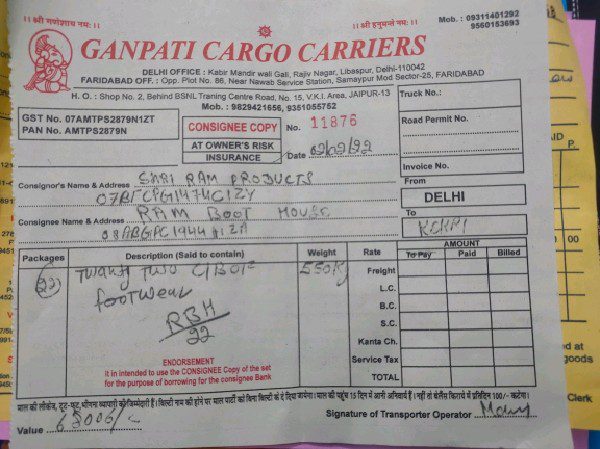 ॥ श्री गणेशाय नमः ॥
॥ श्री हनुमते नमः ॥
Mob. : 09315401292
9560153693
GANPATI CARGO CARRIERS
DELHI OFFICE : Kabir Mandir wali Gali, Rajiv Nagar, Libaspur, Delhi-110042
FARIDABAD OFF. : Opp. Plot No. 86, Near Nawab Service Station, Samaypur Mod Sector-25, FARIDABAD
H. O. : Shop No. 2, Behind BSNL Traming Centre Road, No. 15, V.K.I. Area, JAIPUR-13
Mob. : 9829421656, 9351055752
Truck No.:
GST No. 07AMTPS2879N1ZT
PAN No. AMTPS2879N
CONSIGNEE COPY
No. 11876
Road Permit No.
AT OWNER'S RISK
INSURANCE
Date 02/12/22
Invoice No.
Consignor's Name & Address SHRI RAM PRODUCTS
From
DELHI
Consignee Name & Address RAM BOOT HOUSE
To
Packages
Description (Said to contain)
Weight
Rate
AMOUNT
To Pay
Paid
Billed
22
Twenty two
footwear
RBH
22
550Kg
Freight
L.C.
B.C.
S.C.
Kanta Ch.
Service Tax
TOTAL
ENDORSEMENT
It iin intended to use the CONSIGNEE Copy of the set
for the purpose of borrowing for the consignee Bank
Value
Signature of Transporter Operator
Clerk
goods